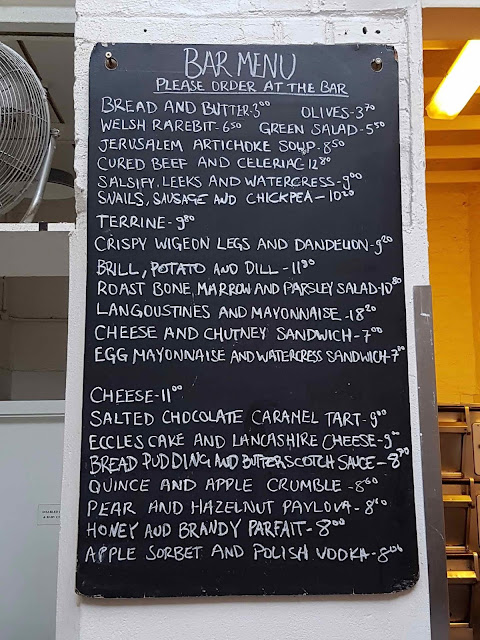 BAR MENU
PLEASE ORDER AT THE BAR
BREAD AND BUTTER-3⁰⁰ OLIVES-3⁷⁰
WELSH RAREBIT-6⁵⁰ GREEN SALAD-5⁵⁰
JERUSALEM ARTICHOKE SOUP-8⁵⁰
CURED BEEF AND CELERIAC-12⁸⁰
SALSIFY, LEEKS AND WATERCRESS-9⁰⁰
SNAILS, SAUSAGE AND CHICKPEA-10²⁰
TERRINE-9⁸⁰
CRISPY WIGEON LEGS AND DANDELION-9²⁰
BRILL, POTATO AND DILL-11⁸⁰
ROAST BONE MARROW AND PARSLEY SALAD-10⁸⁰
LANGOUSTINES AND MAYONNAISE-18²⁰
CHEESE AND CHUTNEY SANDWICH-7⁰⁰
EGG MAYONNAISE AND WATERCRESS SANDWICH-
CHEESE-11⁰⁰
SALTED CHOCOLATE CARAMEL TART-9⁰⁰
ECCLES CAKE AND LANCASHIRE CHEESE-9⁰⁰
BREAD PUDDING AND BUTTERSCOTCH SAUCE-
QUINCE AND APPLE CRUMBLE-8⁶⁰
PEAR AND HAZELNUT PAVLOVA-8⁶⁰
HONEY AND BRANDY PARFAIT-8⁰⁰
APPLE SORBET AND POLISH VODKA-